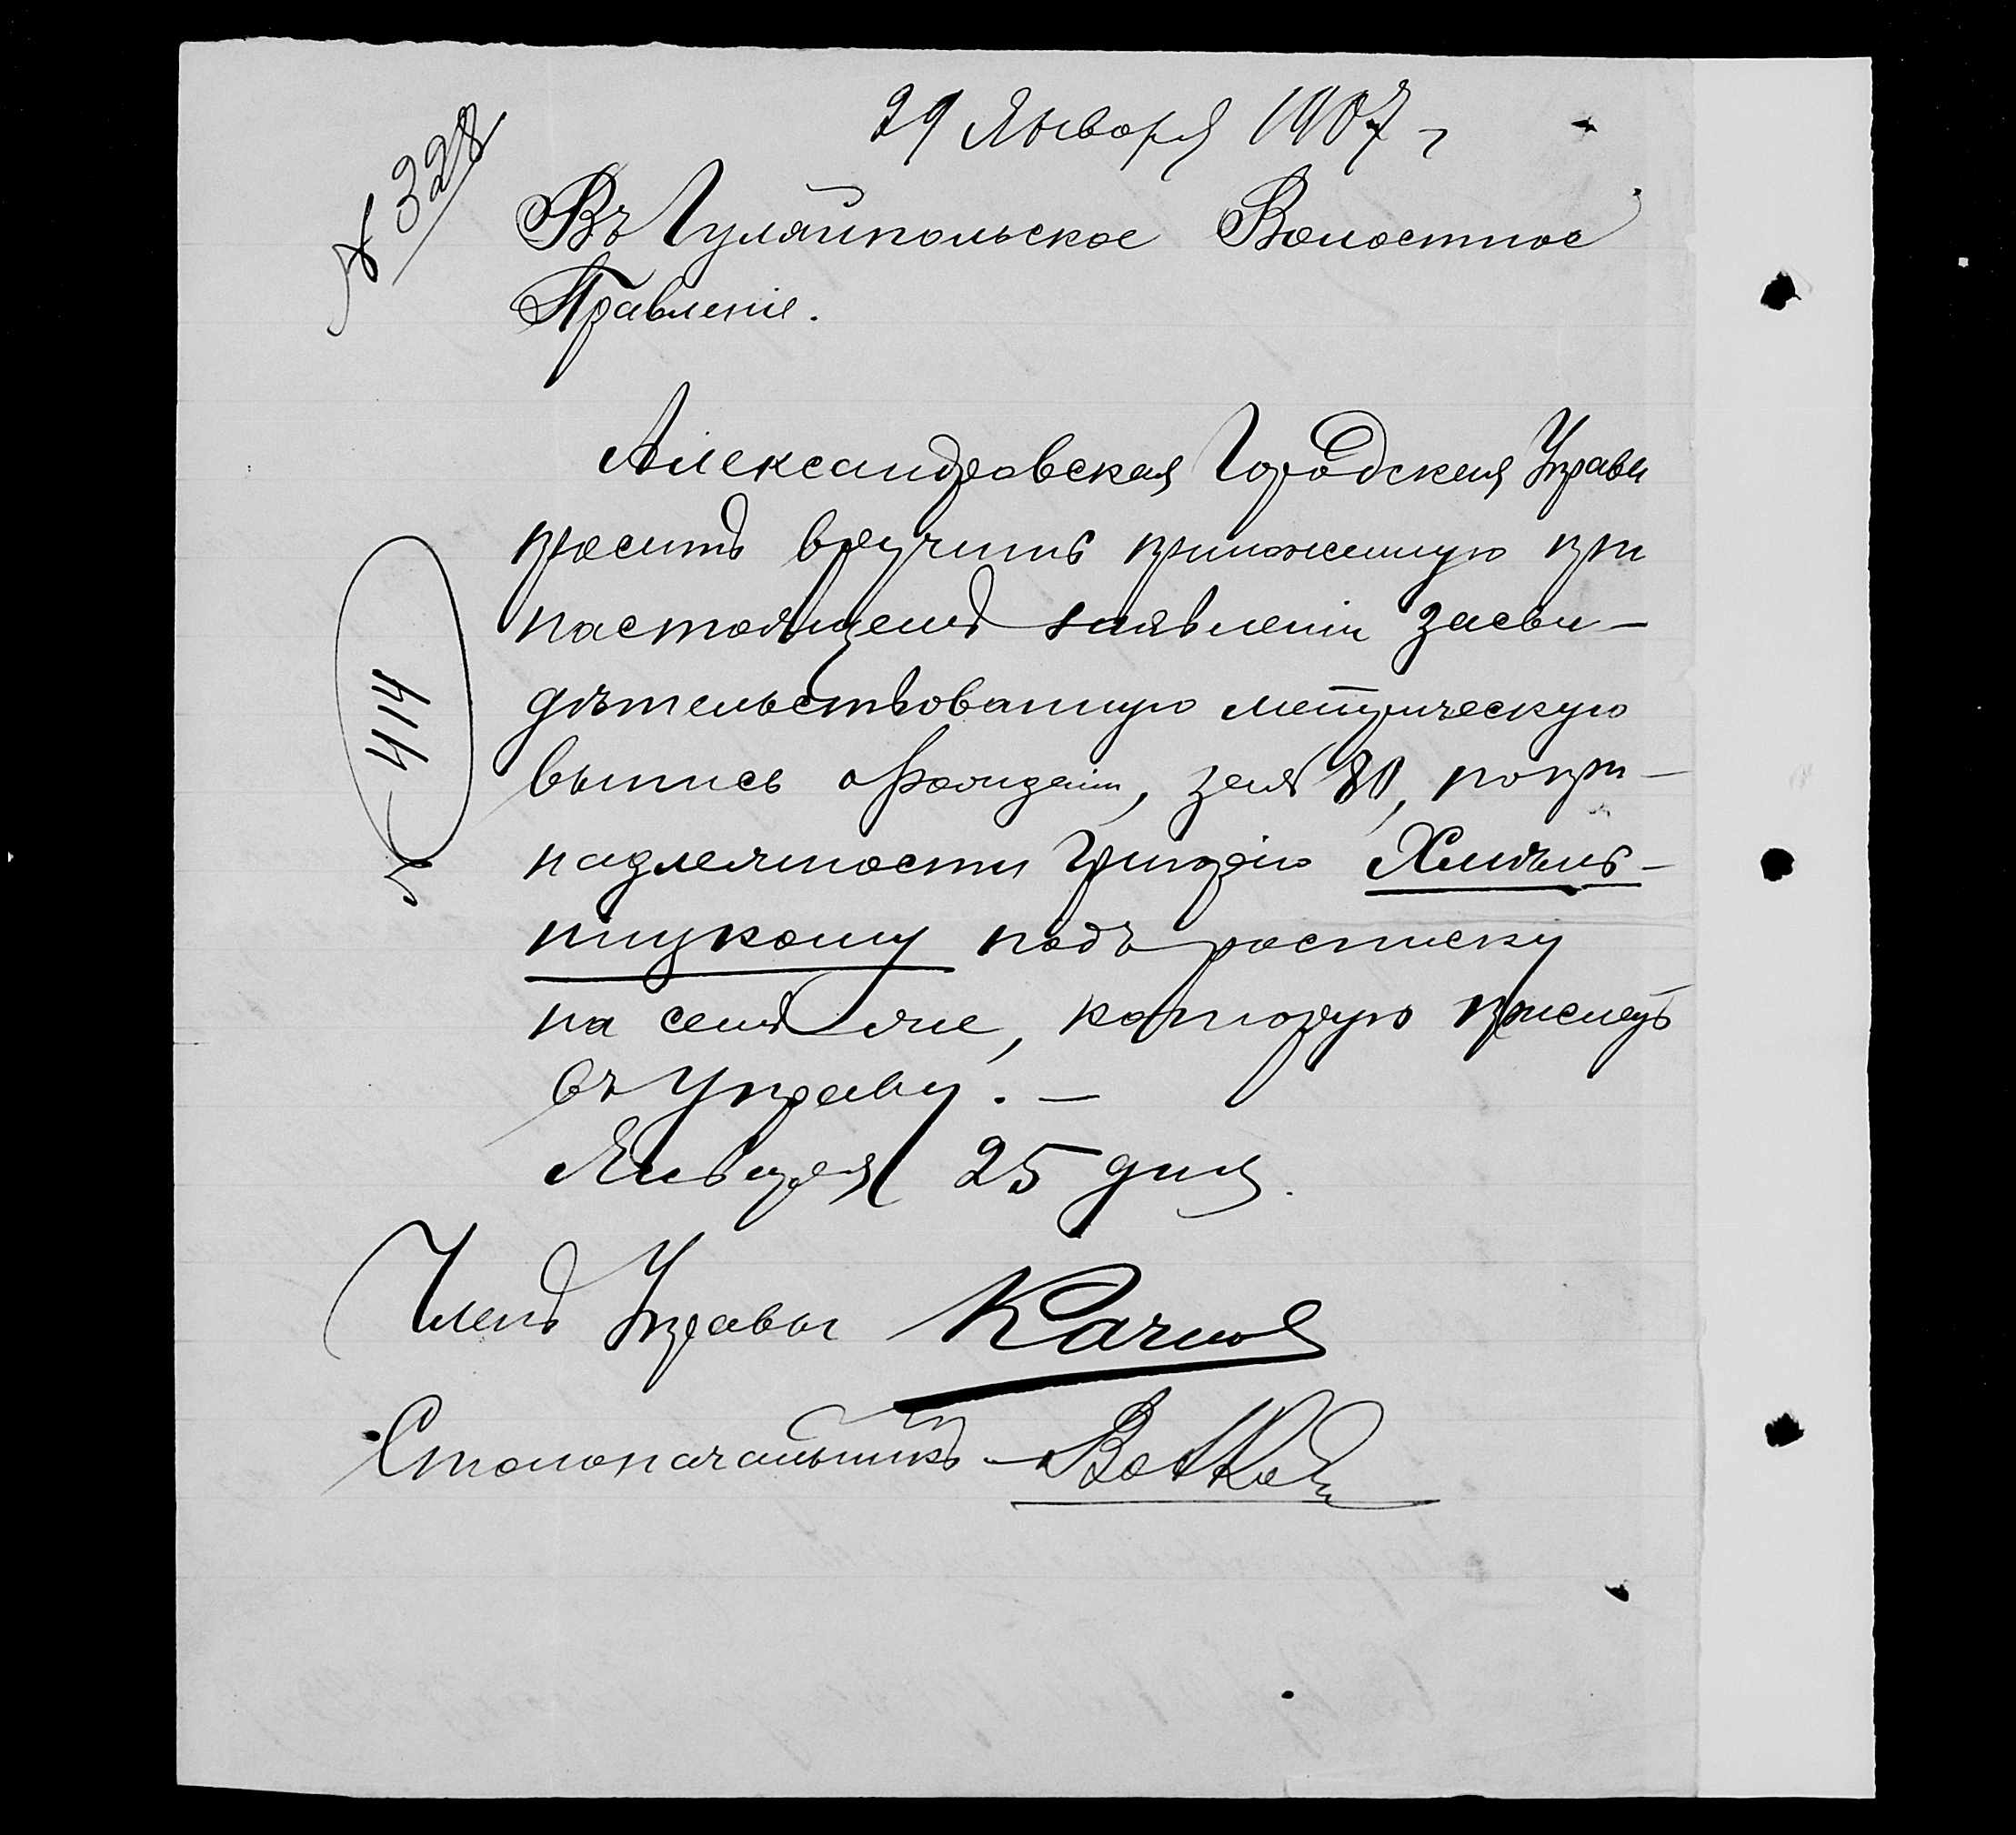 29 Января 1907 г
№ 328
Въ Гуляйпольское Волостное
Правленіе.
Александровская Городская Управа
проситъ вручить приложенную при
настоящемъ заявленіи засви-
дѣтельствованную метрическую
выпись о рожденіи, за № 80, по при-
414
надлежности Григорію Хмѣль-
ницкому подъ росписку
на семъ же, которую
въ Управу. —
Января 25 дня.
Членъ Управы
Столоначальникъ